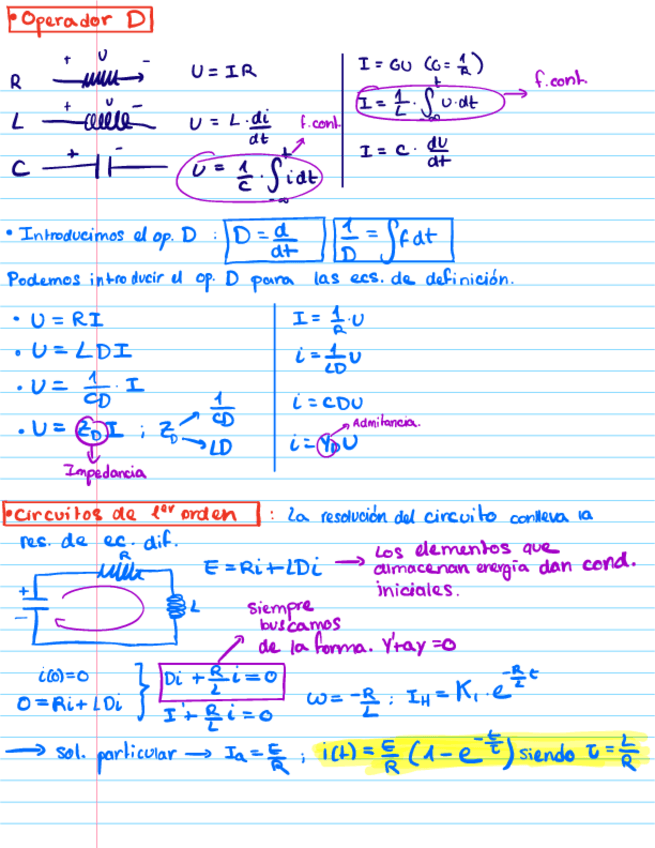 • Operador D
R + U - U = IR I = GU (G = 1/R)
L + U - U = L · di/dt f. cont. I = 1/L · ∫_∞^t U·dt → f. cont.
C + - U = 1/C · ∫_-∞^t i dt I = C · dU/dt
• Introducimos el op. D : D = d/dt 1/D = ∫f dt
Podemos introducir el op. D para las ecs. de definición.
• U = RI I = 1/R · U
• U = LDI i = 1/LD U
• U = 1/CD · I i = CDU
• U = Z_D I ; Z_D → 1/CD → LD i = Y_D U → Admitancia.
Impedancia
• Circuitos de 1er orden : La resolución del circuito conlleva la
res. de ec. dif.
R + - L E = Ri + LDi → Los elementos que
almacenan energía dan cond.
iniciales.
siempre
buscamos
de la forma. Y'+ay = 0
i(0) = 0 } Di + R/L i = 0
0 = Ri + LDi I' + R/L i = 0 ω = -R/L ; I_H = K_1 · e^(-R/L t)
→ sol. particular → Ia = E/R ; i(t) = E/R (1 - e^(-t/τ)) siendo τ = L/R